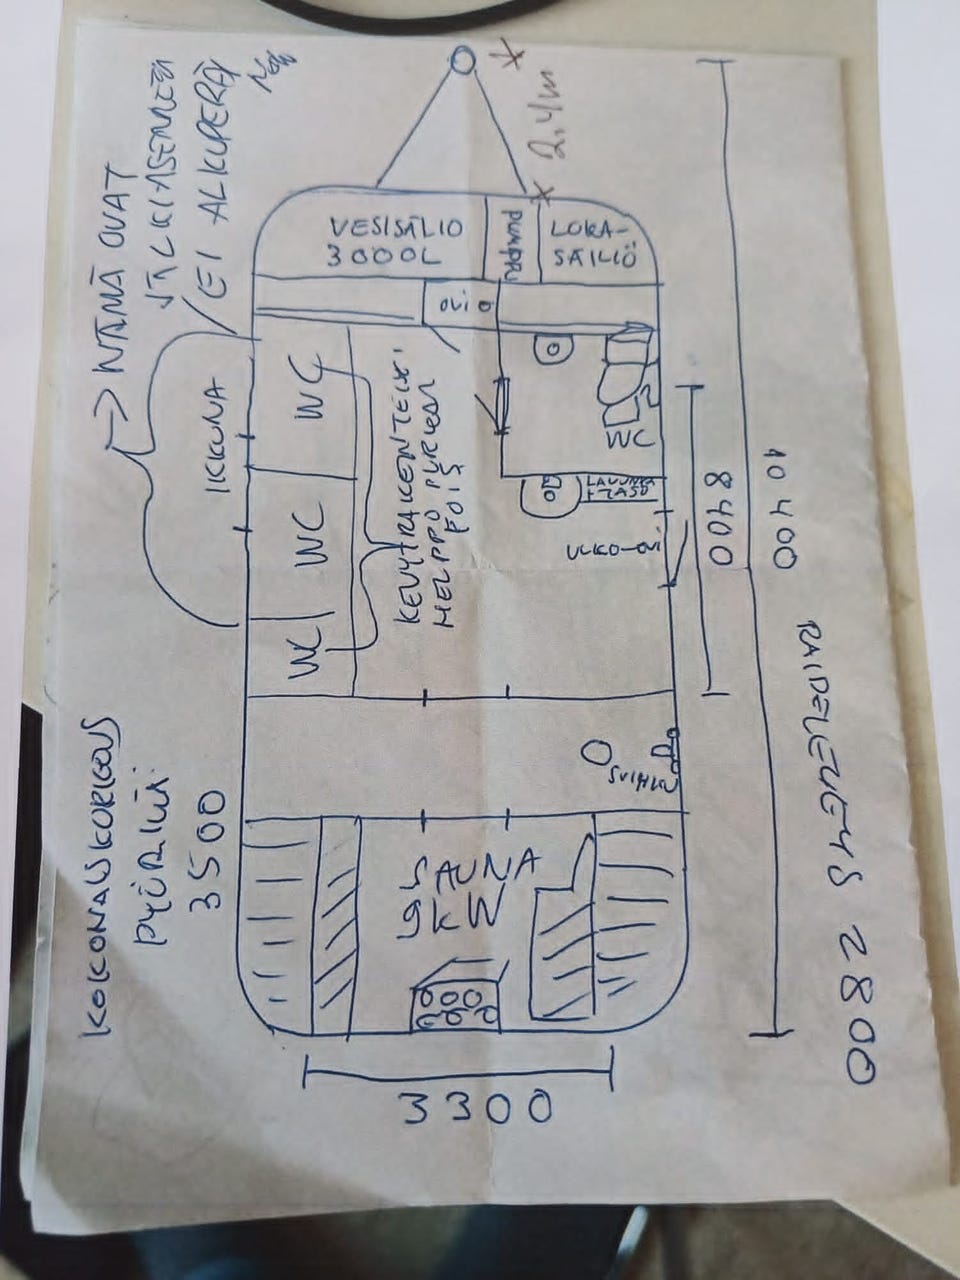 → NÄMÄ OVAT
JÄLKIASENNETTU
(EI ALKUPERÄI
NEN
2.4m
VESISÄLIÖ
3000L
PUMPPU
LOKA-
SÄILIÖ
OVI
IKKUNA
WC
WC
WC
KEVYTRAKENTEIS.
HELPPO PURKAA
POIS
WC
LAVUAARI
+ TASO
ULKO-OVI
8400
10 400
RAIDELEVEYS 2800
KOKONAISKORKEUS
PYÖRINÄ:
3500
SUIHKU
SAUNA
3300